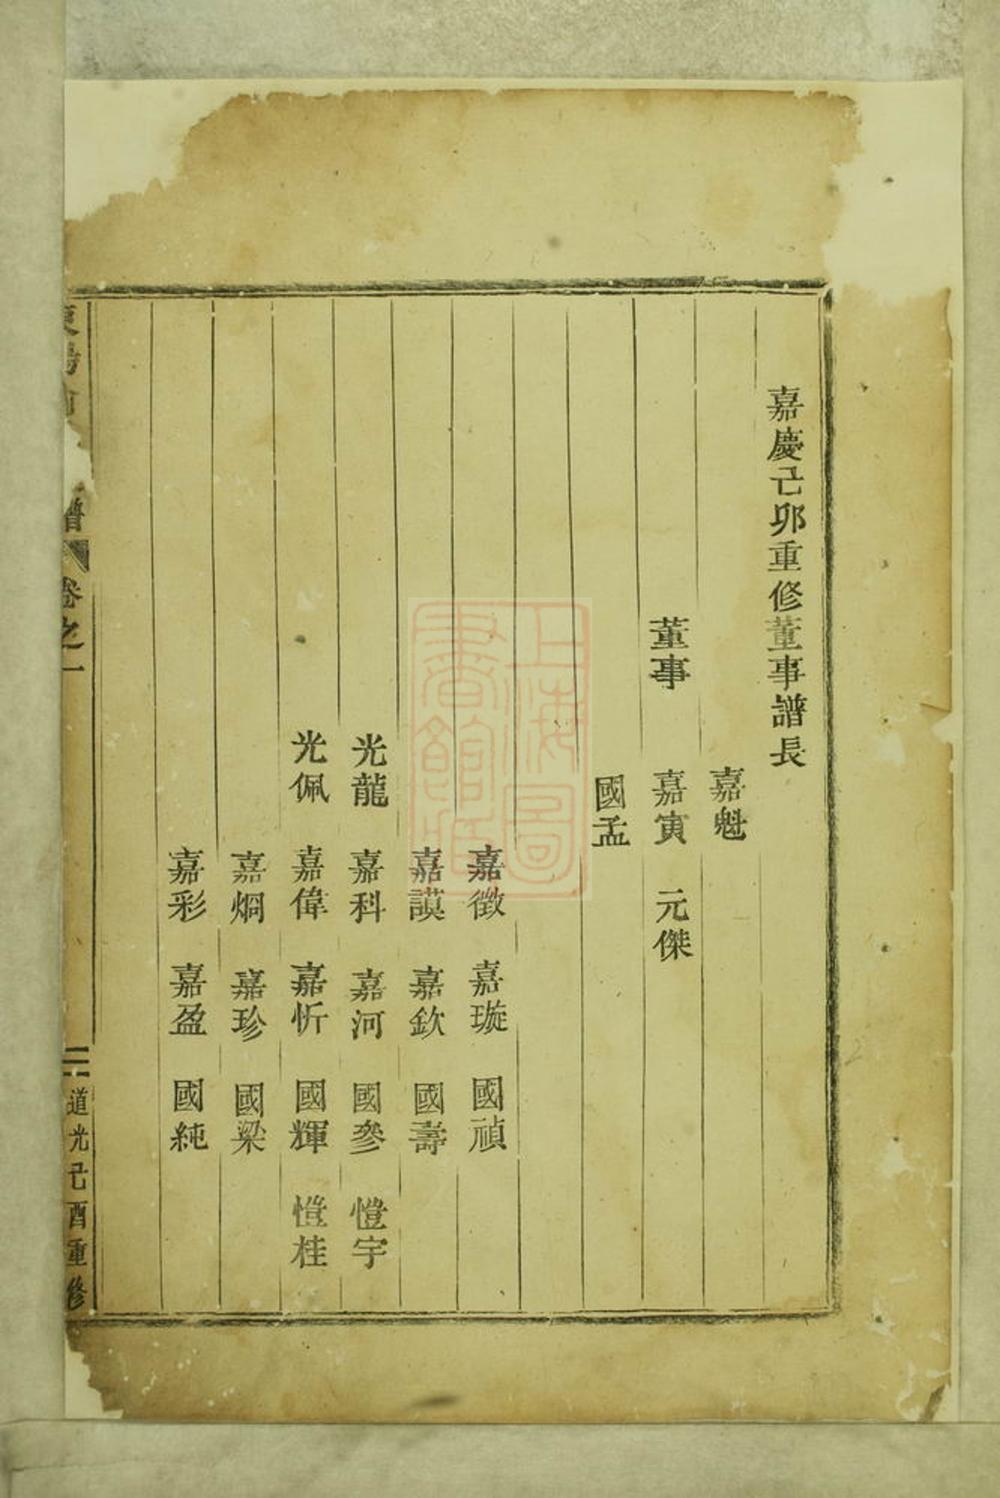 嘉慶己卯重修董事譜長
嘉魁
董事 嘉寅 元傑
國孟
嘉徵 嘉璇 國禎
嘉謨 嘉欽 國壽
光龍 嘉科 嘉河 國參 愷宇
光佩 嘉偉 嘉忻 國輝 愷桂
嘉炯 嘉珍 國梁
嘉彩 嘉盈 國純
譜 卷之一 二 道光己酉重修
上海圖書館藏